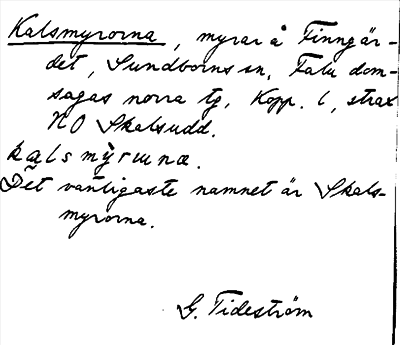 Kalsmyrorna, myrar å Finngär-
det, Sundborns sn, Falu dom-
sagas norra tg, Kopp. l, strax
NO Skalsudd.
kalsmy̆runa.
Det vanligaste namnet är Skals-
myrorna.
G. Tideström